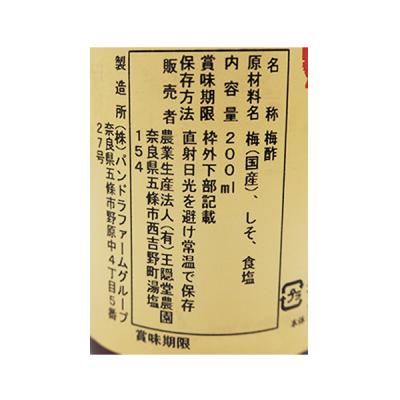 名称 梅酢
原材料名 梅(国産)、しそ、食塩
内容量 200ml
賞味期限 枠外下部記載
保存方法 直射日光を避け常温で保存
販売者 農業生産法人(有)王隠堂農園
奈良県五條市西吉野町湯塩
154
製造所 (株)パンドラファームグループ
奈良県五條市野原中4丁目5番
27号
賞味期限
プラ
本体